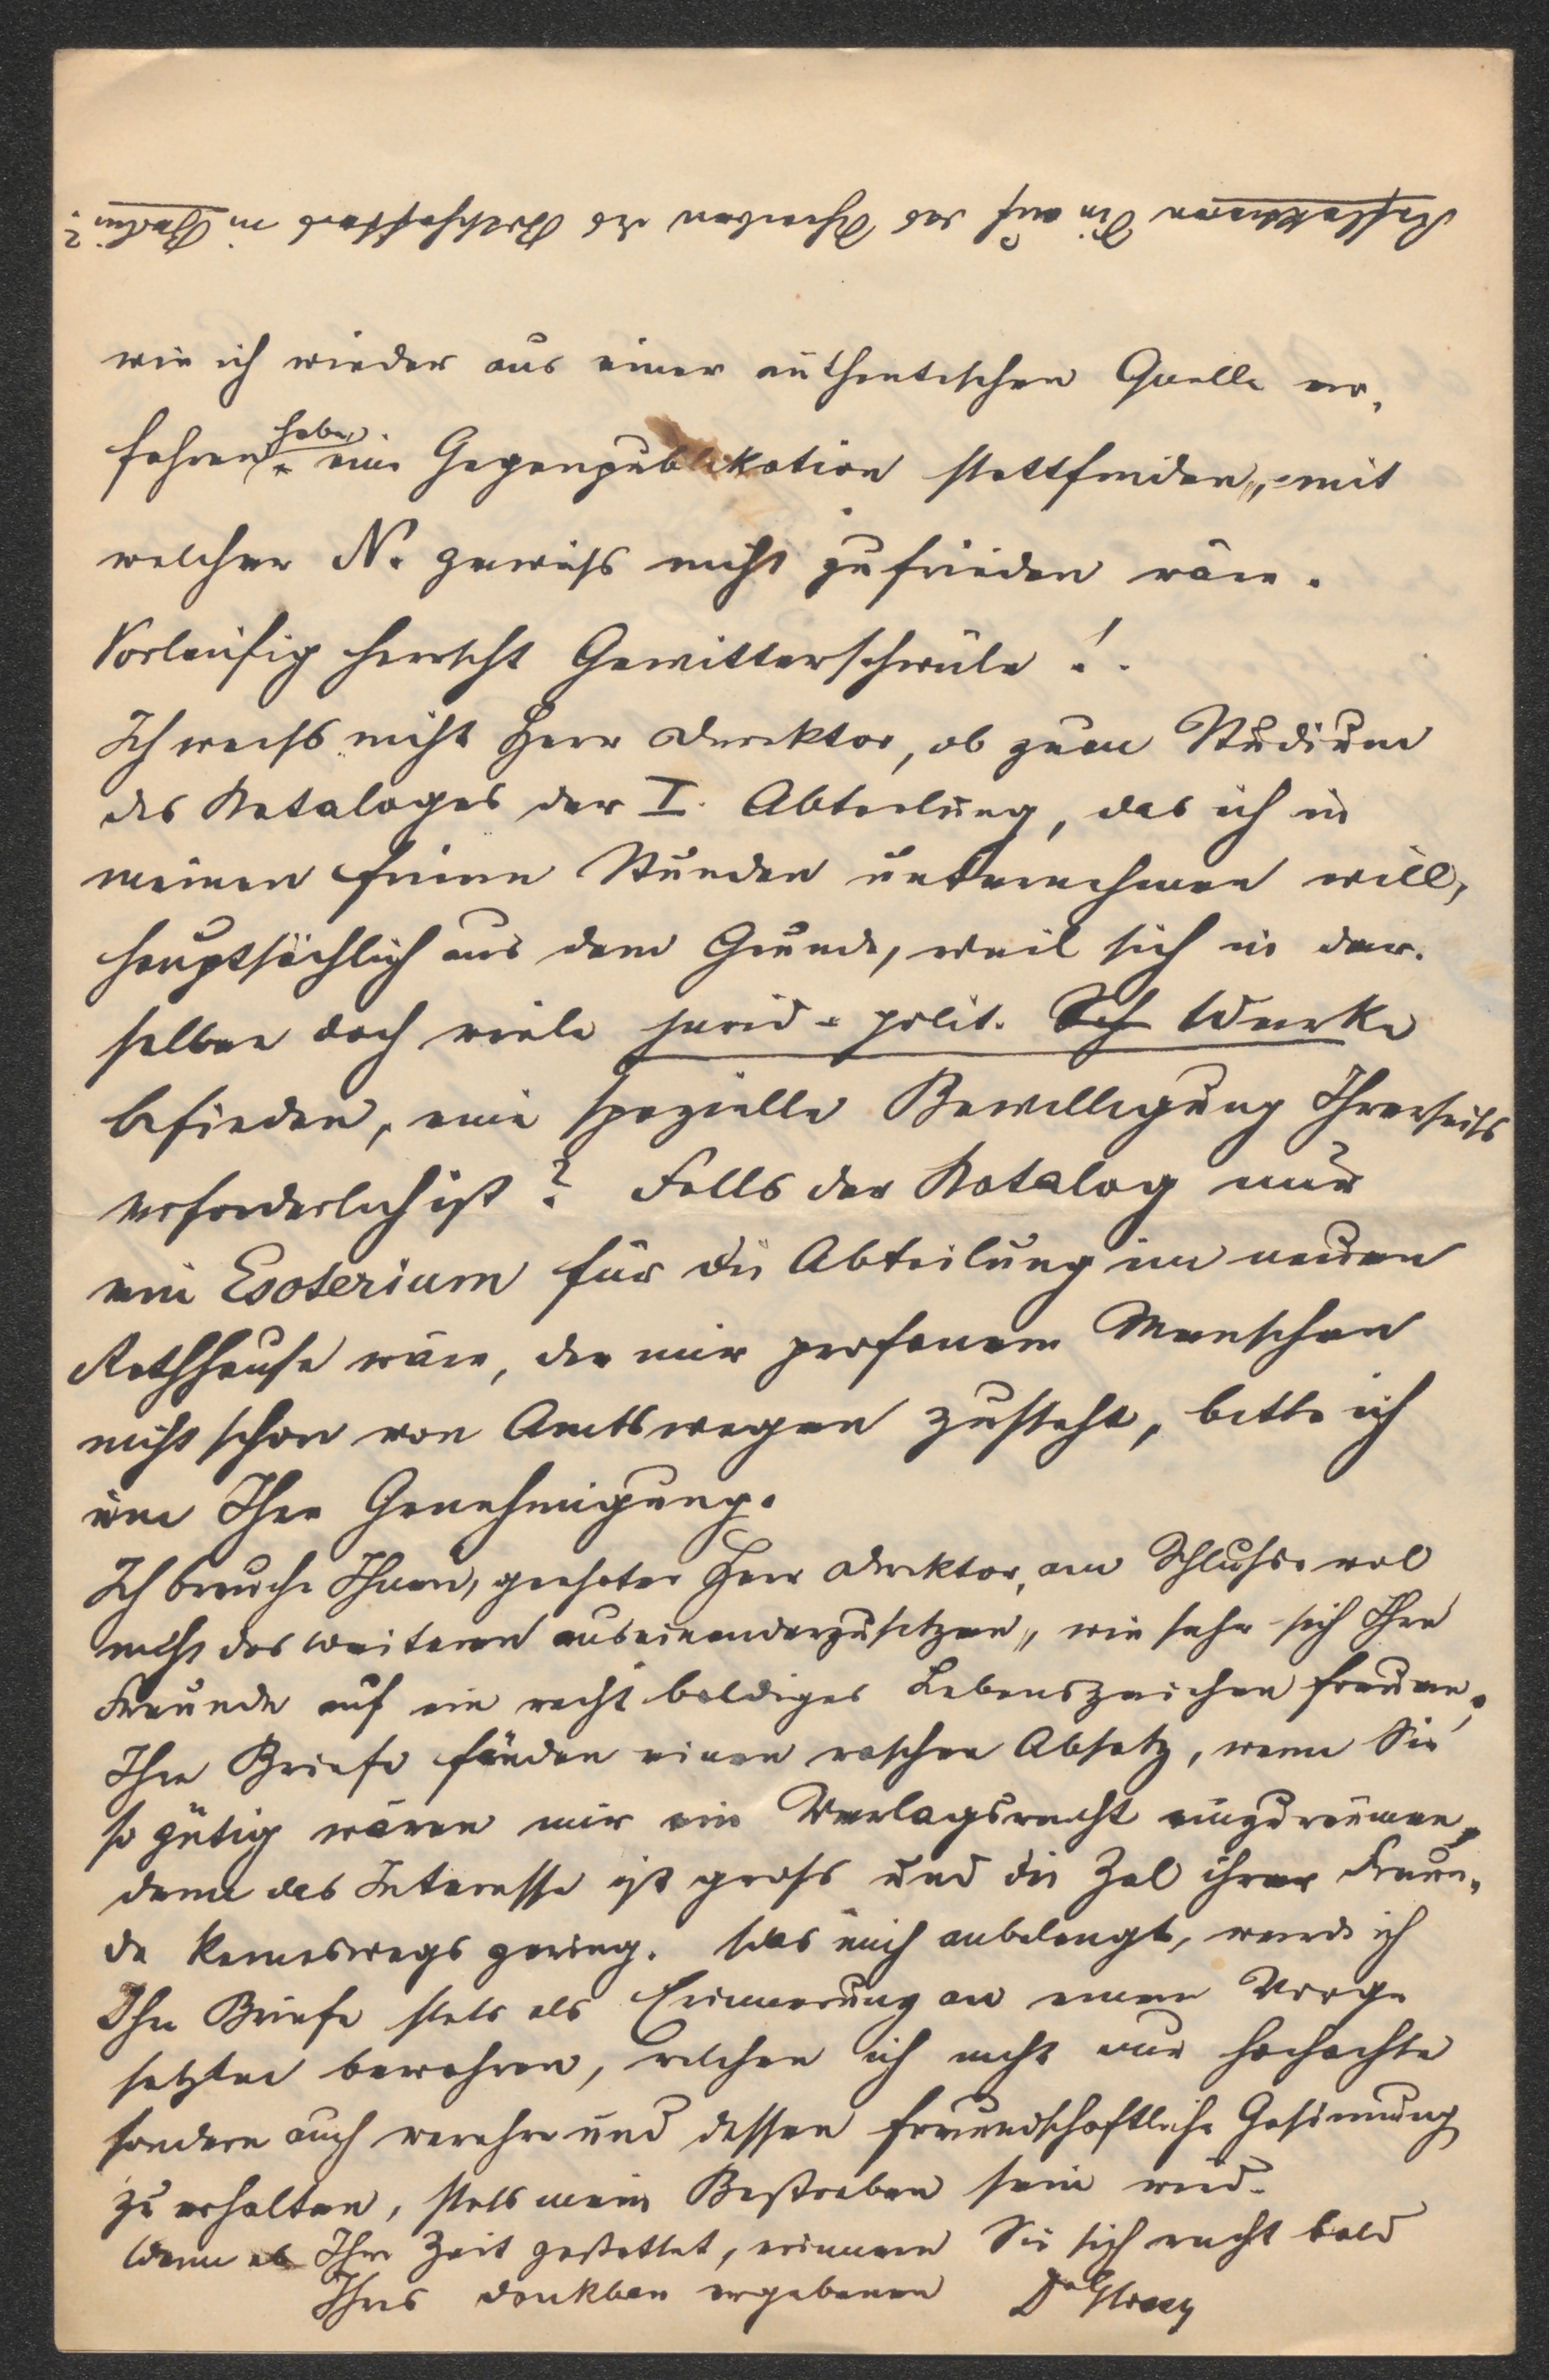 Reflektieren Sie auf das Schreiben des Botschafters in Berlin?
wie ich wieder aus einer authentischen Quelle er-
fahren habe, eine Gegenpublikation stattfinden, mit
welcher N. gewiss nicht zufrieden wäre.
Vorläufig herrscht Gewitterschwüle!.
Ich weiss nicht Herr Direktor, ob zum Studium
des Kataloges der I. Abteilung, das ich in
meinen freien Stunden unternehmen will,
hauptsächlich aus dem Grunde, weil sich in der-
selben doch viele jurid-polit. Sch Werke
befinden, eine spezielle Bewilligung Ihrerseits
erforderlich ist? Falls der Katalog nur
ein Esoterium für die Abteilung im neuen
Rathhause wäre, der mir profanem Menschen
nicht schon von Amtswegen zusteht, bitte ich
um Ihre Genehmigung.
Ich brauche Ihnen, geehrter Herr Direktor, am Schlusse wol
nicht des weiteren auseinanderzusetzen, wie sehr sich Ihre
Freunde auf ein recht baldiges Lebenszeichen freuen.
Ihre Briefe fänden einen raschen Absatz, wenn Sie
so gütig wären mir ein Verlagsrecht einzuräumen,
denn das Interesse ist gross und die Zal ihrer Freun-
de keineswegs gering. Was mich anbelangt, werde ich
Ihre Briefe stets als Erinnerung an einen Vorge
setzten bewahren, welchen ich nicht nur hochachte
sondern auch verehre und dessen freundschaftliche Gesinnung
zu erhalten, stets mein Bestreben sein wird.
Wenn es Ihre Zeit gestattet, erinnern Sie sich recht bald
Ihres dankbar ergebenen